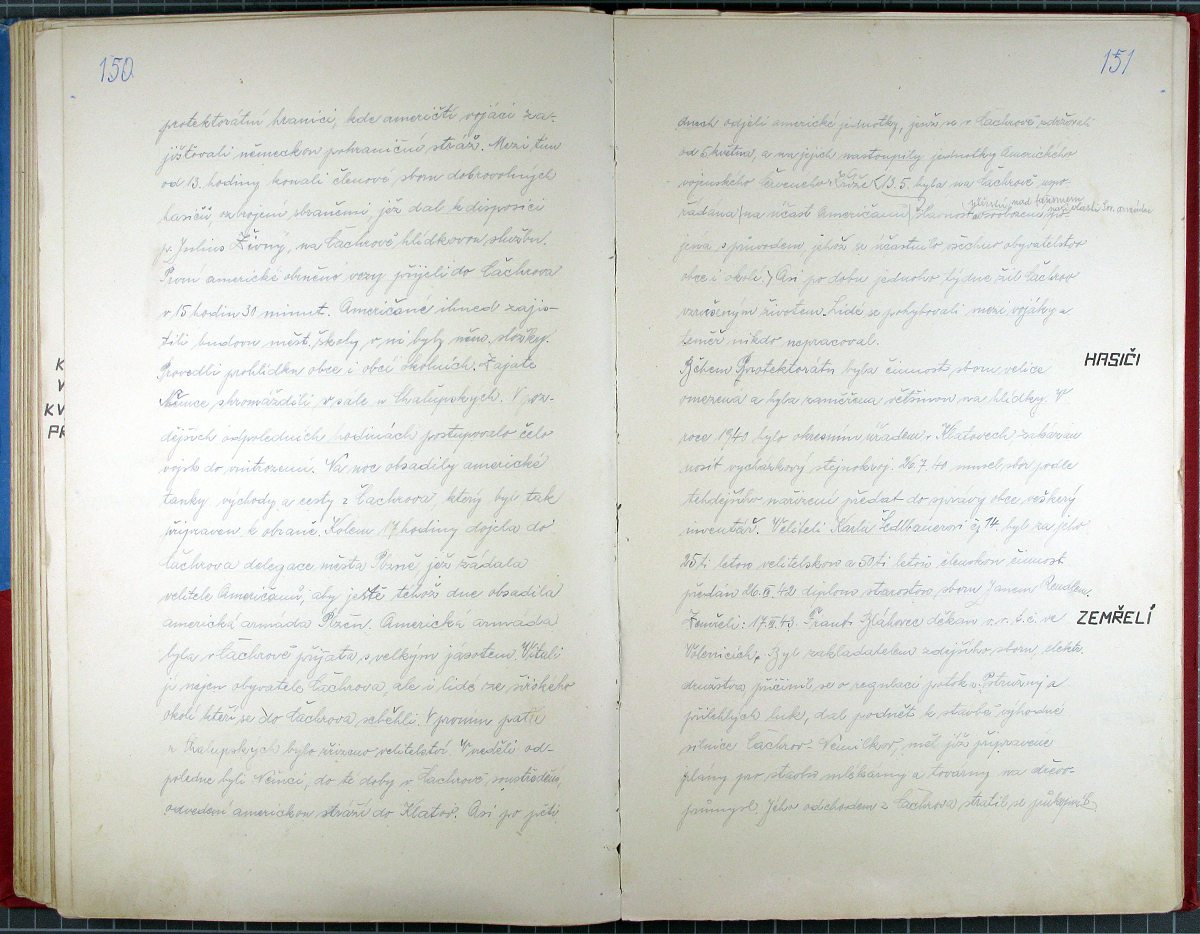 150
protektorátní hranici, kde američtí vojáci za-
jišťovali německou pohraniční stráž. Mezi tím
od 13. hodiny konali členové sboru dobrovolných
hasičů, ozbrojeni zbraněmi, jež dal k disposici
p. Julius Živný, na Čachrově hlídkovou službu.
První americké obrněné vozy přijeli do Čachrova
v 15 hodin 30 minut. Američané ihned zajis-
tili budovu měšť. školy v ní byly něm. složky.
Provedli prohlídku obce i obcí okolních. Zajaté
Němce shromáždili v sále u Chalupských. V poz-
dějších odpoledních hodinách postupovalo čelo
vojsk do vnitrozemí. Na noc obsadily americké
tanky východy a cesty z Čachrova který byl tak
připraven k obraně. Kolem 17 hodiny dojela do
Čachrova delegace města Plzně jež žádala
velitele Američanů, aby ještě téhož dne obsadila
americká armada Plzeň. Americká armada
byla v Čachrově přijata s velkým jasotem. Vítali
ji nejen obyvatelé Čachrova, ale i lidé ze širokého
okolí kteří se do Čachrova seběhli. V prvním patře
u Chalupských bylo zřízeno velitelství. V neděli od-
poledne byli Němci, do té doby v Čachrově soustředěni,
odvedeni americkou stráží do Klatov. Asi po pěti
K
V
KV
PR
151
dnech odjeli americké jednotky, jenž se v Čachrově zdržovali
od 5 května, a na jejich nastoupily jednotky Amerického
vojenského Červeného Kříže. 13.5. byla na Čachrově uspo-
řádána na účast Američanů slavnost osvobození spo-
vítězství nad fašismem
naší vlasti Sov. armádou
jená s průvodem jehož se účastnilo všechno obyvatelstvo
obce i okolí. Asi po dobu jednoho týdne žil Čachrov
vzrušeným životem. Lidé se pohybovali mezi vojáky a
téměř nikdo nepracoval.
HASIČI
Během Protektorátu byla činnost sboru velice
omezena a byla zaměřena většinou na hlídky. V
roce 1940 bylo okresním úřadem v Klatovech zakázáno
nosit vycházkový stejnokroj. 26.7.40 musel sbor podle
tehdejšího nařízení předat do správy obce veškerý
inventář. Veliteli Karlu Sedlbauerovi čp 14. byl za jeho
25ti letou velitelskou a 50ti letou členskou činnost
předán 26.IV.42 diplom starostou sboru Janem Rendlem.
ZEMŘELÍ
Zemřeli: 17.IV.43. Frant. Bláhovec děkan v.v. t.č. ve
Volenicích. Byl zakladatelem zdejšího sboru, elektr.
družstva přičinil se o regulaci potoku Pstružný a
přilehlých luk, dal podnět k stavbě výhodné
silnice Čachrov - Němilkov, měl již připravené
plány pro stavbu mlékárny a továrny na dřevo-
průmysl. Jeho odchodem z Čachrova stratil se průkopník